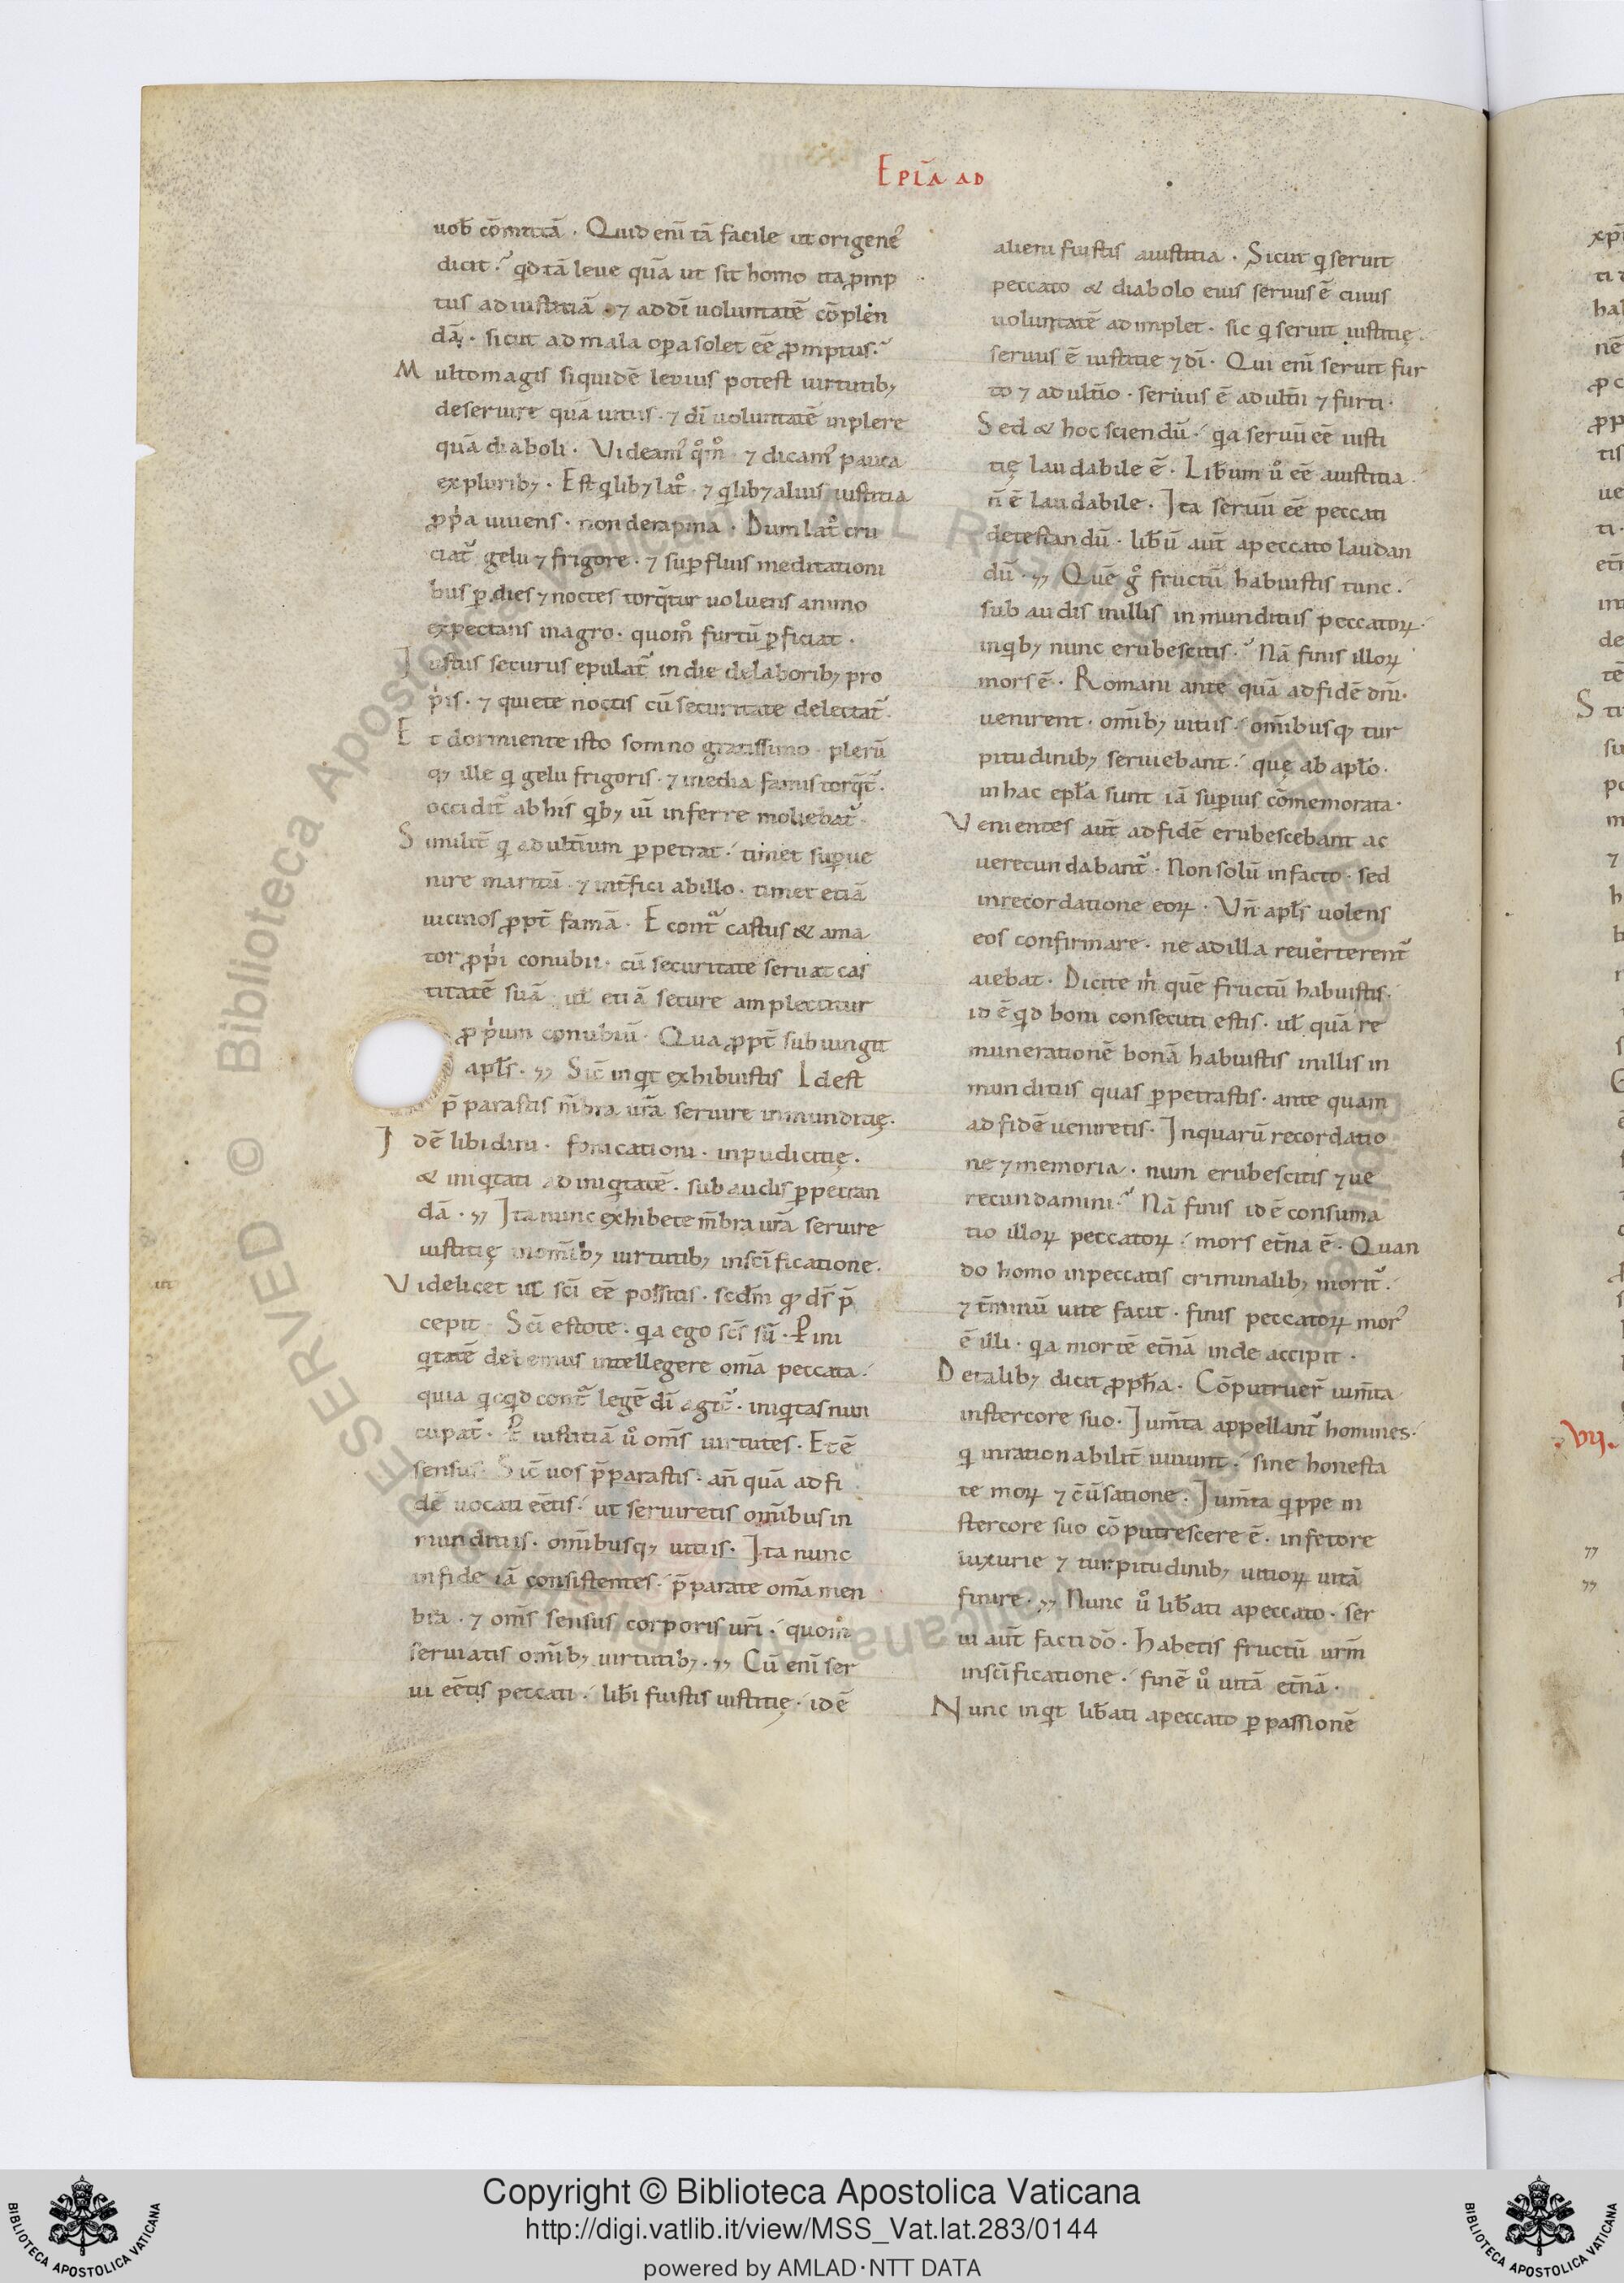 EPLA AD
uob cōmittā · Quid enī tā facile ut origenes
dicit · qd tā leue quā ut sit homo ita ꝓmp
tus ad iustitiā · ⁊ ad dī uoluntatē cōplen
dā · sicut ad mala opa solet eē ꝓmptus ·
Multo magis siquidē leuius potest uirtutibꝫ
deseruire quā uitiis · ⁊ dī uoluntatē inplere
quā diaboli · Videam' qm̊ · ⁊ dicam' pauca
ex pluribꝫ · Est qlibꝫ lat̊ · ⁊ qlibꝫ alius iustitia
ꝓpa uiuens · non de rapina · Dum lat̊ cru
ciat᷑ gelu ⁊ frigore · ⁊ supfluis meditationi
bus ꝑ dies ⁊ noctes torq̄tur uoluens animo
expectans in agro · quom̊ furtū ꝑficiat ·
Iustus securus epulat᷑ in die de laboribꝫ pro
pis · ⁊ quiete noctis cū securitate delectat᷑ ·
Et dormiente isto somno gratissimo · plerū
qꝫ ille q gelu frigoris · ⁊ inedia famis torq̄t᷑ ·
occidit᷑ ab his qbꝫ uī inferre moliebat᷑ ·
Similit̄ q adult̄ium ꝑpetrat · timet supue
nire maritū · ⁊ int̄fici ab illo · timet etiā
uicinos ꝓpt̄ famā · E cont᷑ castus & ama
tor ꝓpi conubii · cū securitate seruat cas
titatē suā · ul̄ etiā secure amplectitur
ꝓpium conubiū · Qua ꝓpt̄ subiungit
apl̄s · ,, Sic̄ inqt exhibuistis Idest
p̄parastis m̄bra ur̄a seruire inmunditię ·
Idē libidini · fornicationi · inpudicitię ·
& iniqtati ad iniqtatē · subaudis ꝑpetran
dā · ,, Ita nunc exhibete m̄bra ur̄a seruire
iustitię in om̄ibꝫ uirtutibꝫ in sc̄ificatione ·
Videlicet ul̄ sc̄i eē possitis · scdm̄ qd ds̄ p̄
cepit · Sc̄i estote · qa ego sc̄s sū · P ini
qtatē debemus intellegere om̄a peccata ·
quia qcqd cont᷑ legē dī agit᷑ · iniqtas nun
cupat᷑ · P iustitiā ů om̄s uirtutes · Et ē
sensus · Sic̄ uos p̄parastis · an̄ quā ad fi
dē uocati eētis · ut seruiretis om̄ibus in
munditiis · om̄ibusqꝫ uitiis · Ita nunc
in fide iā consistentes · p̄parate om̄a men
bra · ⁊ om̄s sensus corporis ur̄i · quom̊
seruiatis om̄ibꝫ uirtutibꝫ · ,, Cū enī ser
ui eētis peccati · lib̄i fuistis iustitię · id ē
alieni fuistis a iustitia · Sicut q seruit
peccato & diabolo eius seruus ē cuius
uoluntatē adimplet · sic q seruit iustitię ·
seruus ē iustitie ⁊ dī · Qui enī seruit fur
to ⁊ adult̄io · seruus ē adult̄ii ⁊ furti ·
Sed & hoc sciendū · qa seruū eē iusti
tię laudabile ē · Lib̄um ů eē a iustitia
n̄ ē laudabile · Ita seruū eē peccati
detestandū · lib̄ū aut̄ a peccato laudan
dū · ,, Quē g̊ fructū habuistis tunc ·
subaudis in illis inmunditiis peccatoꝝ ·
in qbꝫ nunc erubescitis · Nā finis illoꝝ
mors ē · Romani ante quā ad fidē dn̄i ·
uenirent · om̄ibꝫ uitiis · om̄ibusqꝫ tur
pitudinibꝫ seruiebant · quę ab apl̄o ·
in hac epl̄a sunt iā supius cōmemorata ·
Venientes aut̄ ad fidē erubescebant ac
uerecundabant᷑ · Non solū in facto · sed
in recordatione eoꝝ · Vn̄ apl̄s uolens
eos confirmare · ne ad illa reuerterent᷑
aiebat · Dicite m̊ quē fructū habuistis ·
id ē qd boni consecuti estis · ul̄ quā re
munerationē bonā habuistis in illis in
munditiis quas ꝑpetrastis · ante quam
ad fidē ueniretis · In quarū recordatio
ne ⁊ memoria · num erubescitis ⁊ ue
recundamini · Nā finis id ē consuma
tio illoꝝ peccatoꝝ · mors et̄na ē · Quan
do homo in peccatis criminalibꝫ morit᷑ ·
⁊ t̄minū uite facit · finis peccatoꝝ mors
ē illi · qa mortē et̄nā inde accipit ·
De talibꝫ dicit ꝓph̄a · Cōputruer̄ ium̄ta
in stercore suo · Ium̄ta appellant᷑ homines ·
q inrationabilit̄ uiuunt · sine honesta
te moꝝ ⁊ c̄uersatione · Ium̄ta qppe in
stercore suo cōputrescere ē · in fetore
luxurie ⁊ turpitudinibꝫ uitioꝝ uitā
finire · ,, Nunc ů lib̄ati a peccato · ser
ui aut̄ facti dō · Habetis fructū ur̄m
in sc̄ificatione · finē ů uitā et̄nā ·
Nunc inqt lib̄ati a peccato ꝑ passionē
·VII·
Copyright © Biblioteca Apostolica Vaticana
http://digi.vatlib.it/view/MSS_Vat.lat.283/0144
powered by AMLAD·NTT DATA
BIBLIOTECA APOSTOLICA VATICANA
BIBLIOTECA APOSTOLICA VATICANA